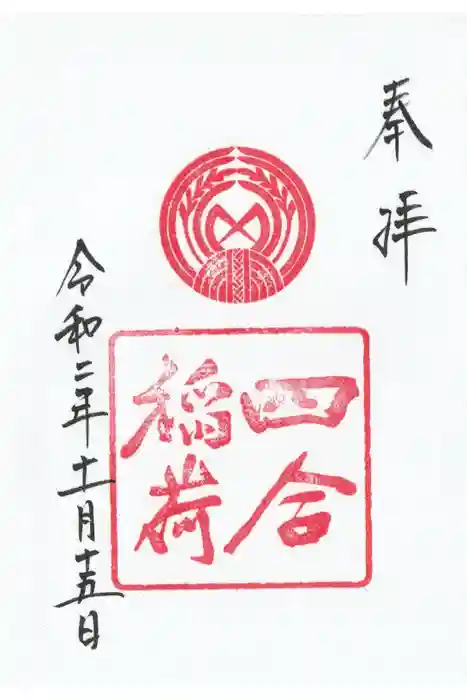 奉拝
四合
稲荷
令和二年十一月十五日